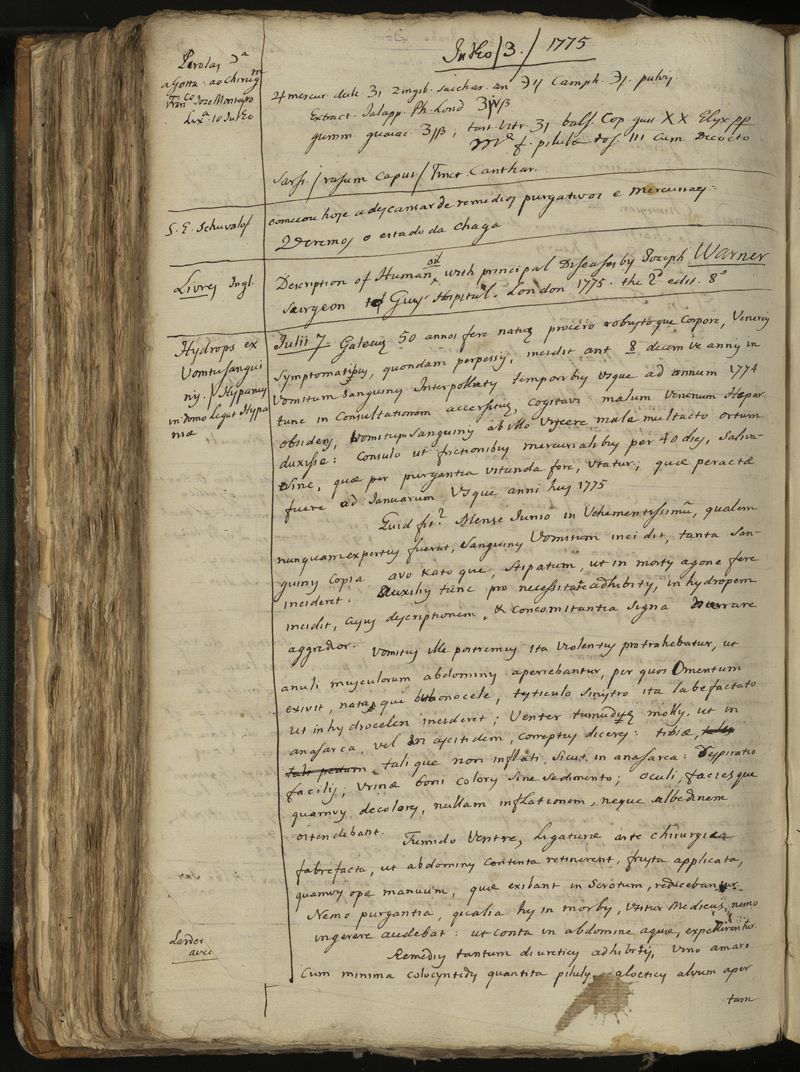 Julho / 3. / 1775
Pirolas
a Gotta. ao Chirurg
Franco Joze Monteyro
Lxa. 10 Julho
mercur dulc ʒ1 Zingib. Sacchar. an Camph. pulv.
Extract. Jalapp. Ph. Lond
gumm guaiac ʒiβ; tart. vitr. ʒ1 bals. Cop. gutt XX Elyx pp
f. pilulæ dos. III cum Decocto
Sars. / rasum Caput / Tinct. Canthar.
S. E. Schuvalof
comecou hoje a descansar de remedios purgativos e mercuriaes.
Veremos o estado da chaga
Livres Ingl.
Description of Human with principal Diseases by Joseph Warner
Surgeon to Guys Hospital. London 1775. the 2d edit. 8°
Hydrops ex
Vomitu sangui
nis. / Hispanus
in domo Legat Hispa
niæ
Julii 7 Galecus 50 annos fere natus procero robustoque Corpore, Venereis
Symptomatibus, quondam perpessis, incidit ant 8 decem ve annis in
Vomitum Sanguinis Interpollatis temporibus usque ad annum 1774
tunc in Consultationem accersitus, cogitavi malum Venenum Hepar
obsidens, Vomitum sanguinis ab illo viscere male mulctato ortum
duxisse: Consulo ut frictionibus mercurialibus per 40 dies, saliva-
tione, quæ per purgantia vitanda fore, utatur; quæ peractæ
fuere ad Januarum usque anni hujus 1775
Quid fit? Mense Junio in Vehementissimũ, qualem
nunquam expertus fuerat, Sanguinis Vomitum incidit, tanta San-
guinis Copia atro Kato que, stipatum, ut in mortis agone fere
incideret: Auxiliis tunc pro necessitate adhibitis, in hydropem
incidit, cujus descriptionem, & concomitantia signa narrare
aggredior. Vomitus ille postremus ita violentus protrahebatur, ut
anuli musculorum abdominis aperiebantur, per quos Omentum
exivit, nata que bubonocele, testiculo sinistro ita labefactato
ut in hydrocelen incideret; Venter tumidus mollis, ut in
anasarca, vel in ascitidem, correptus diceres: tibiæ,
talique non inflati, sicut in anasarca: Respiratio
facilis, Urinæ boni coloris sine sedimento; oculi, faciesque
quamvis decolores, nullam inflationem, neque albedinem
ostendebant. Tumido Ventre, Ligaturæ arte chirurgica
fabrefacta, ut abdominis contenta retinerent, frustra applicata,
quamvis ope manuum, quæ exibant in Scrotum, reducebantur.
Nemo purgantia, qualia his in morbis, utitur Medicus, nemo
ingerere audebat: ut conta in abdomine aquæ, expellirentur.
Larder
avec
Remediis tantum diureticis adhibitis, vino amaro
Cum minima colocyntidis quantita pilulis aloeticis alvum aper
tam